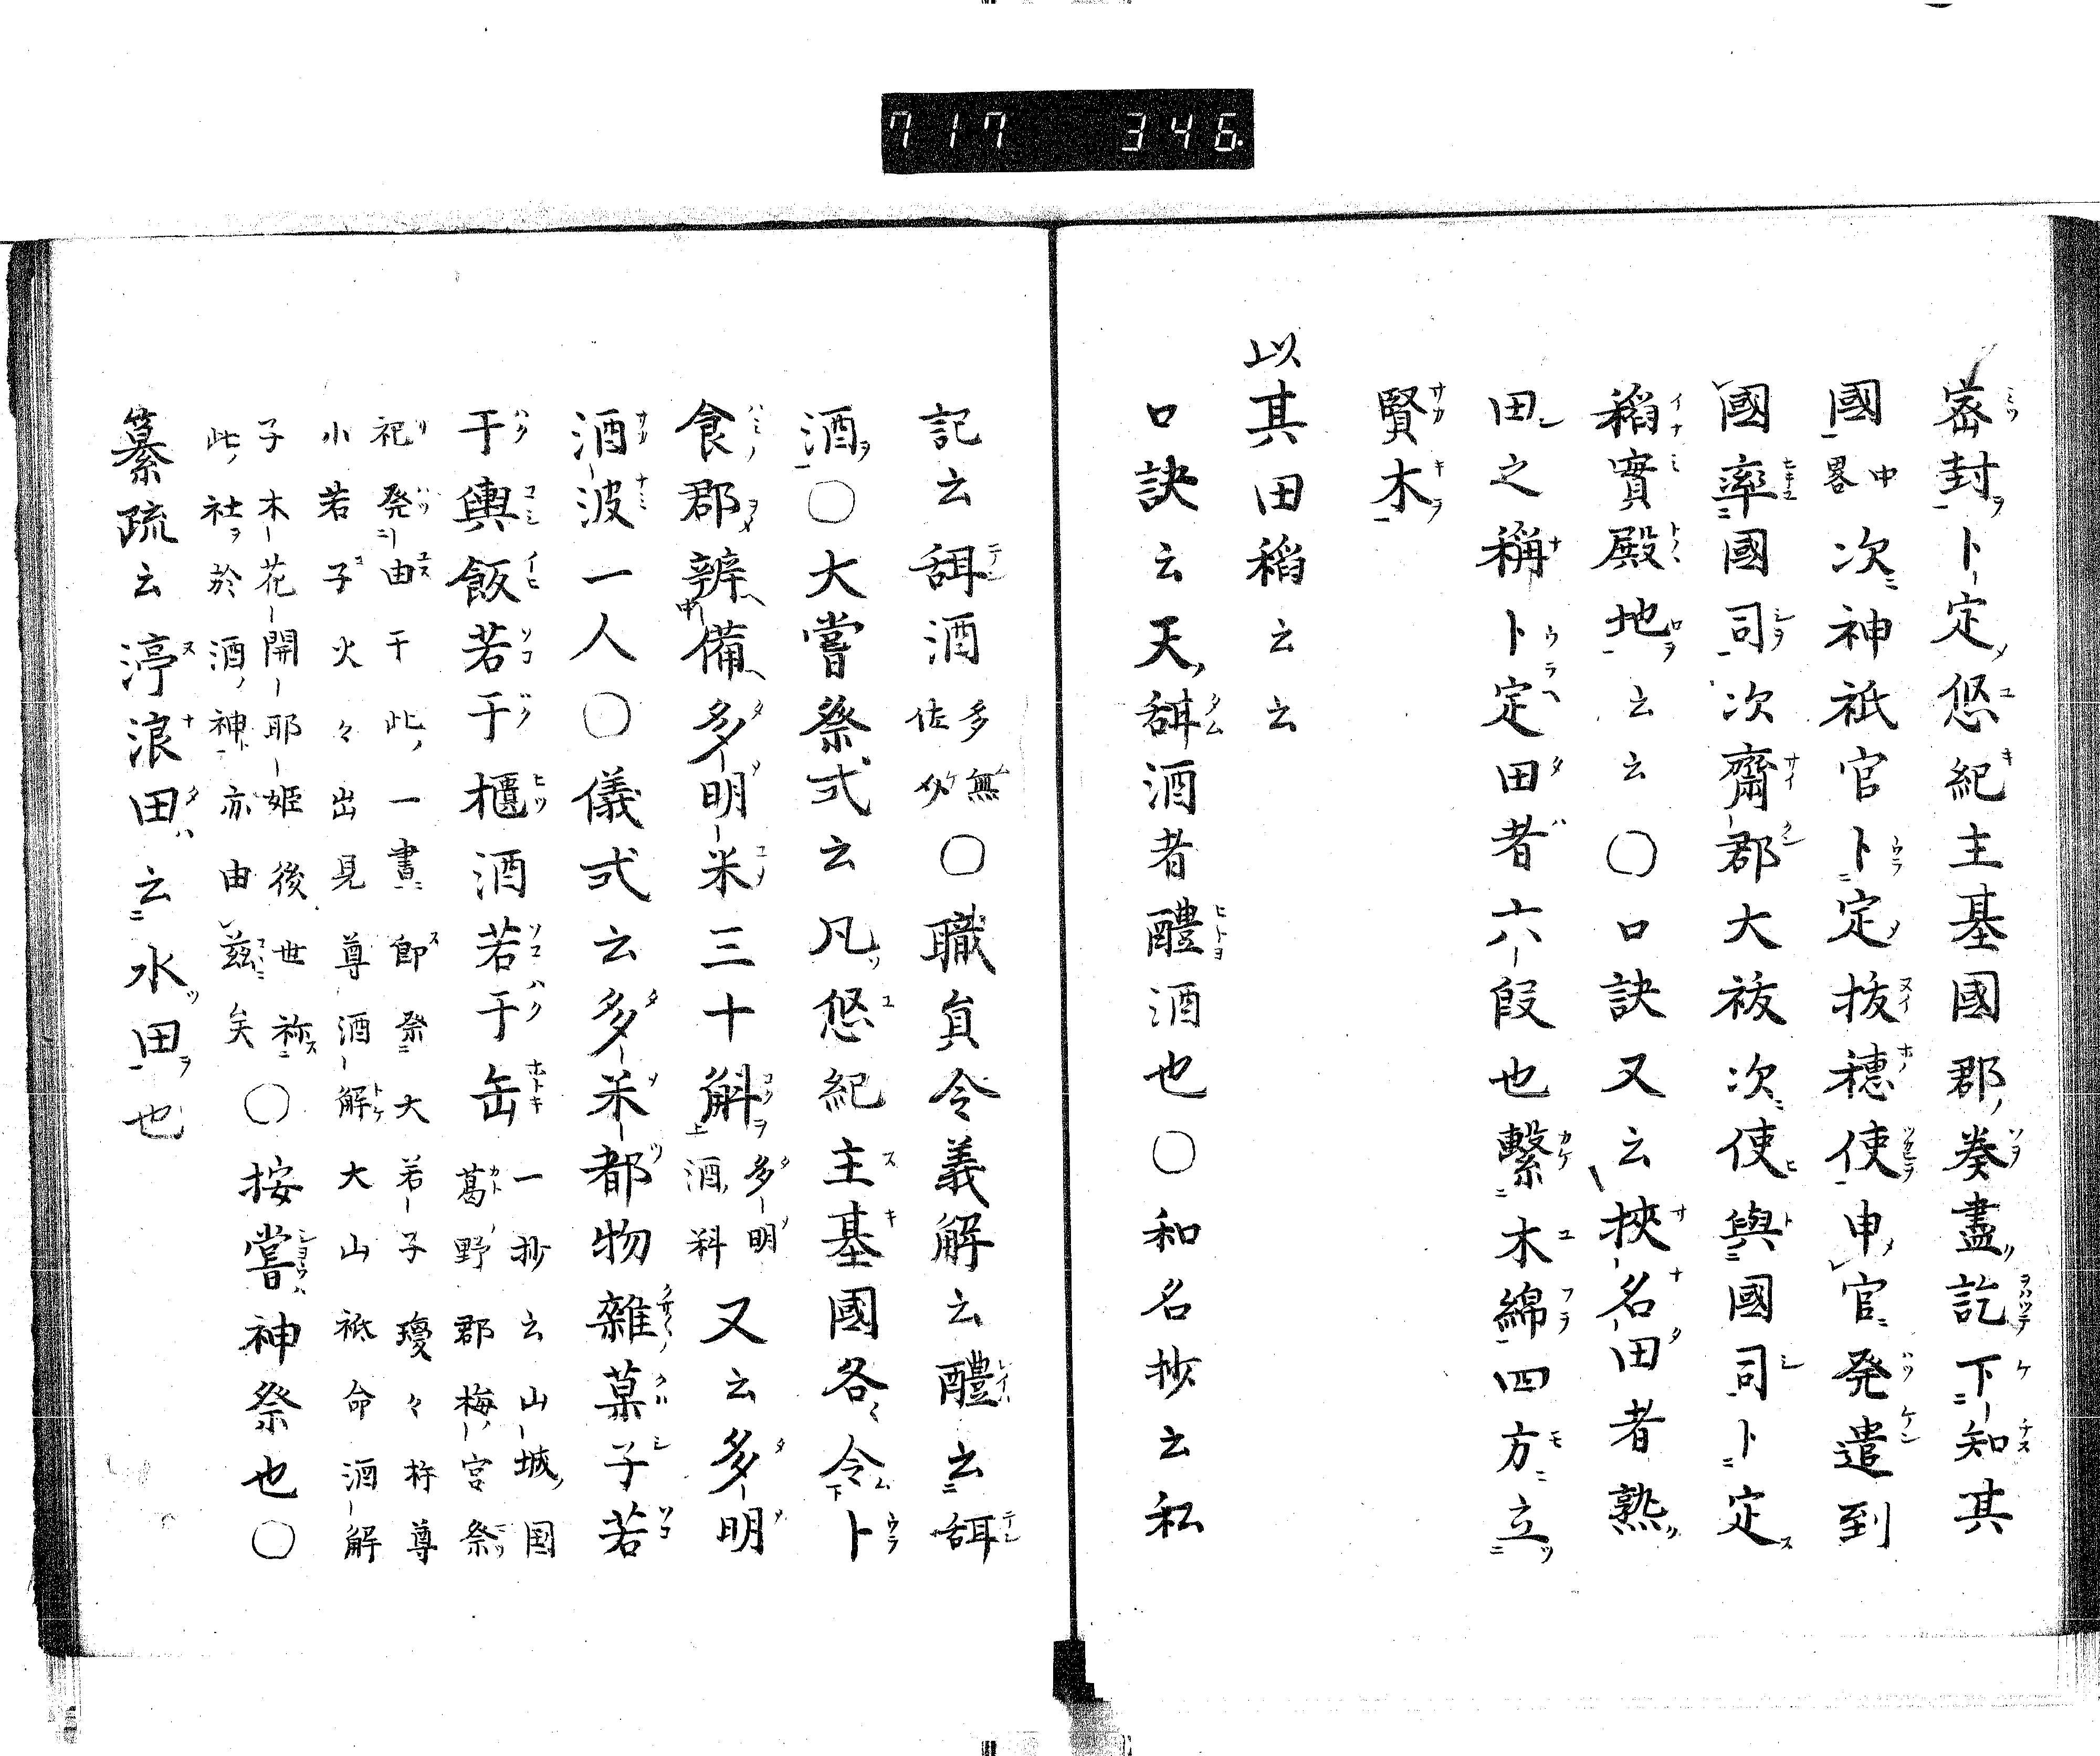 717 346
密封卜定悠紀主基國郡奏盡訖下知其
國中畧次神祇官卜定抜穂使申官発遣到
國率國司次齋郡大祓次使與國司卜定
稻實殿地云云○口訣又云挾名田者熟
田之稱卜定田者六段也繫木綿四方立
賢木
以其田稻云云
口訣云天甜酒者醴酒也○和名抄云私
記云甜酒多無佐気○職員令義解云醴云甜
酒○大嘗祭式云凡悠紀主基國各令卜
食郡辨備多明米三十斛多明酒料又云多明
酒波一人○儀式云多米都物雜菓子若
干輿飯若干櫃酒若干缶一抄云山城国葛野郡梅宮祭
祀発由于此一書即祭大若子瓊々杵尊
小若子火々出見尊酒解大山祇命酒解
子木花開耶姫後世祢
此社於酒神亦由茲矣○按嘗神祭也○
纂疏云渟浪田云水田也